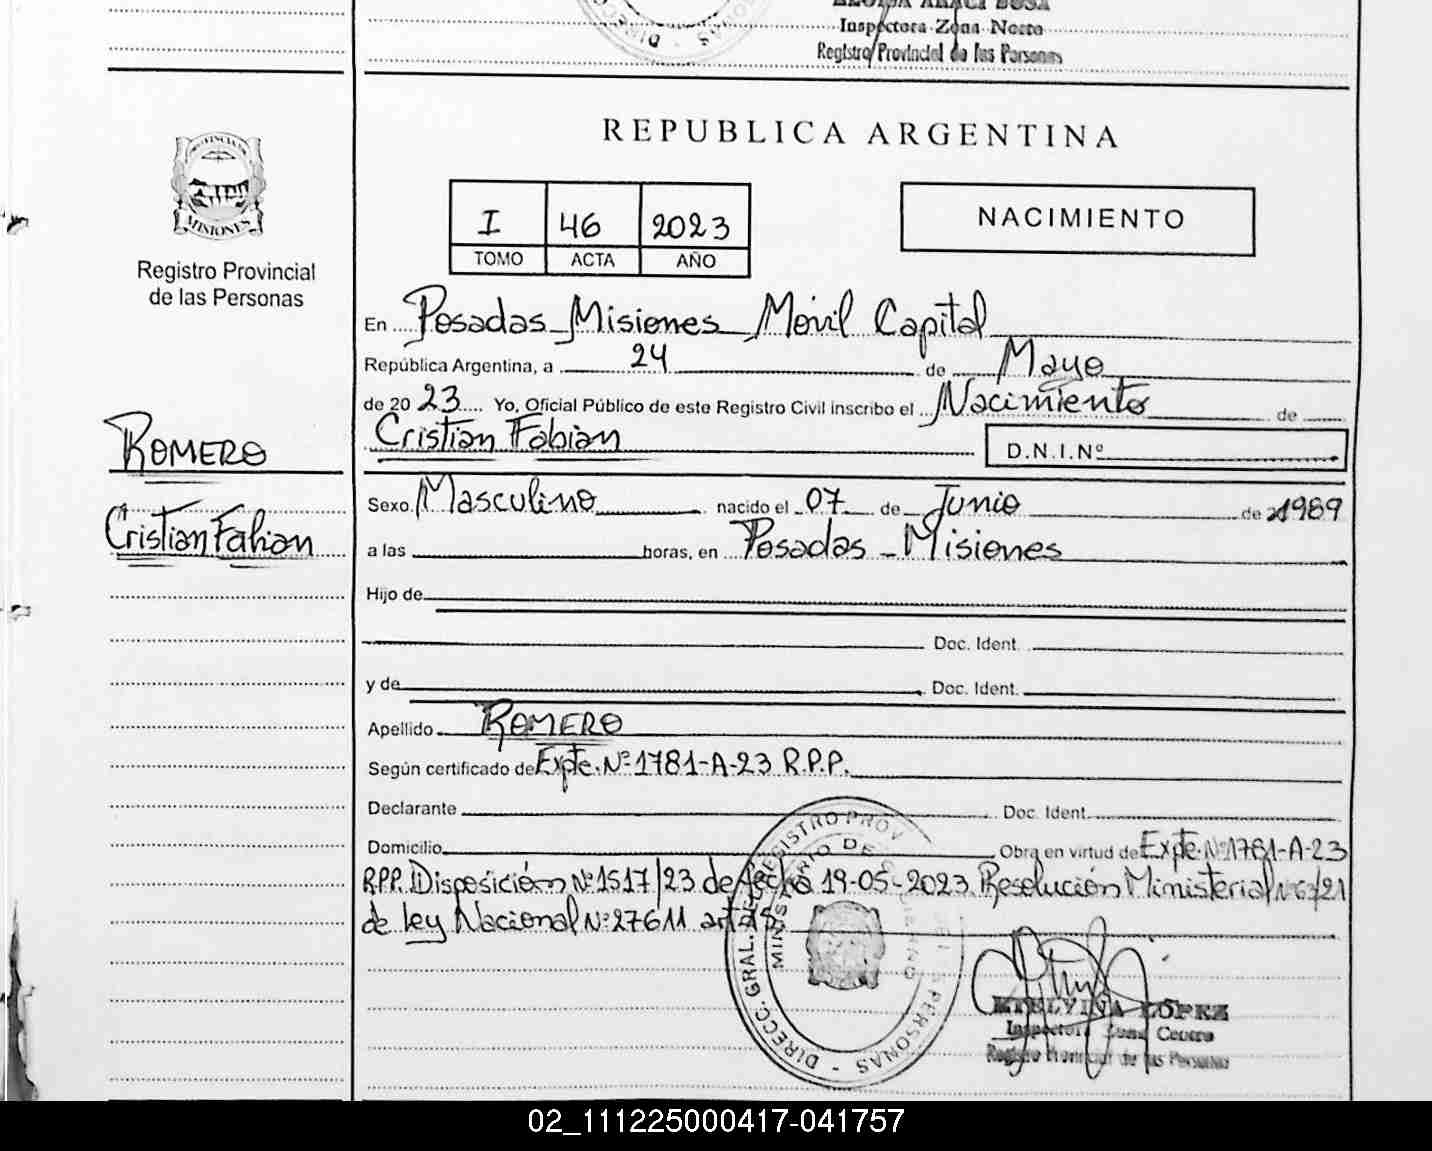 Inspectora Zona Norte
Registro Provincial de las Personas
REPUBLICA ARGENTINA
PROVINCIA DE
MISIONES
Registro Provincial
de las Personas
I 46 2023
TOMO ACTA AÑO
NACIMIENTO
En Posadas Misiones Movil Capital
República Argentina, a 24 de Mayo
de 20 23 Yo, Oficial Público de este Registro Civil inscribo el Nacimiento de
Cristian Fabian D.N.I.Nº
ROMERO
Cristian Fabian
Sexo Masculino nacido el 07 de Junio de 1989
a las horas, en Posadas - Misiones
Hijo de
Doc. Ident.
y de Doc. Ident.
Apellido ROMERO
Según certificado de Expte. Nº 1781-A-23 R.P.P.
Declarante Doc. Ident.
Domicilio Obra en virtud de Expte. Nº 1781-A-23
R.P.P. Disposición Nº 1517/23 de fecha 19-05-2023. Resolución Ministerial Nº 63/21
de ley Nacional Nº 27611 art
DIRECC. GRAL. REGISTRO PROV PERSONAS
MINISTERIO DE GOBIERNO
ETELVINA LÓPEZ
Inspectora Zona Centro
Registro Provincial de las Personas
02_111225000417-041757